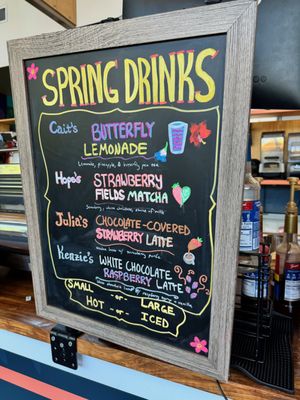 SPRING DRINKS
Cait's BUTTERFLY
LEMONADE
Lemonade, pineapple, & butterfly pea tea
Hope's STRAWBERRY
FIELDS MATCHA
Strawberry, white chocolate, choice of milk
Julia's CHOCOLATE-COVERED
STRAWBERRY LATTE
Kenzie's WHITE CHOCOLATE
RASPBERRY LATTE
SMALL -or- LARGE
HOT -or- ICED